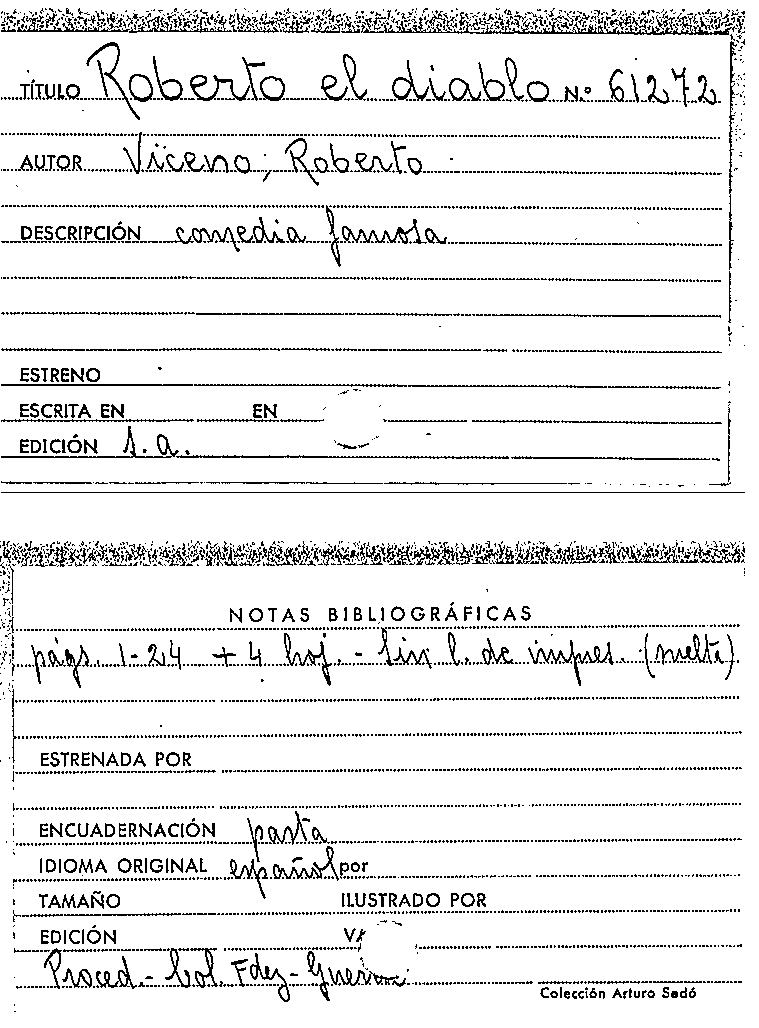 TÍTULO Roberto el diablo N.º 61272
AUTOR Viceno, Roberto
DESCRIPCIÓN comedia famosa
ESTRENO
ESCRITA EN EN
EDICIÓN s.a.
NOTAS BIBLIOGRÁFICAS
págs. 1-24 + 4 hoj. - Sin l. de impres. (suelta)
ESTRENADA POR
ENCUADERNACIÓN pasta
IDIOMA ORIGINAL español por
TAMAÑO ILUSTRADO POR
EDICIÓN
Proced.- Col. Fdez-Guerra
Colección Arturo Sedó